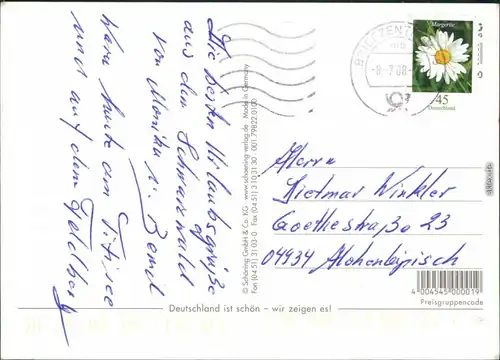 Die besten Urlaubsgrüße
aus dem Schwarzwald
von Monika u. Bernd
Ware heute am Titisee
und auf dem Feldberg
© Schöning GmbH & Co. KG · www.schoening-verlag.de · Made in Germany
Margerite
45
Deutschland
Herrn
Dietmar Winkler
Goethestraße 23
04934 Hohenleipisch
4 004545 000019
Preisgruppencode
Deutschland ist schön – wir zeigen es!